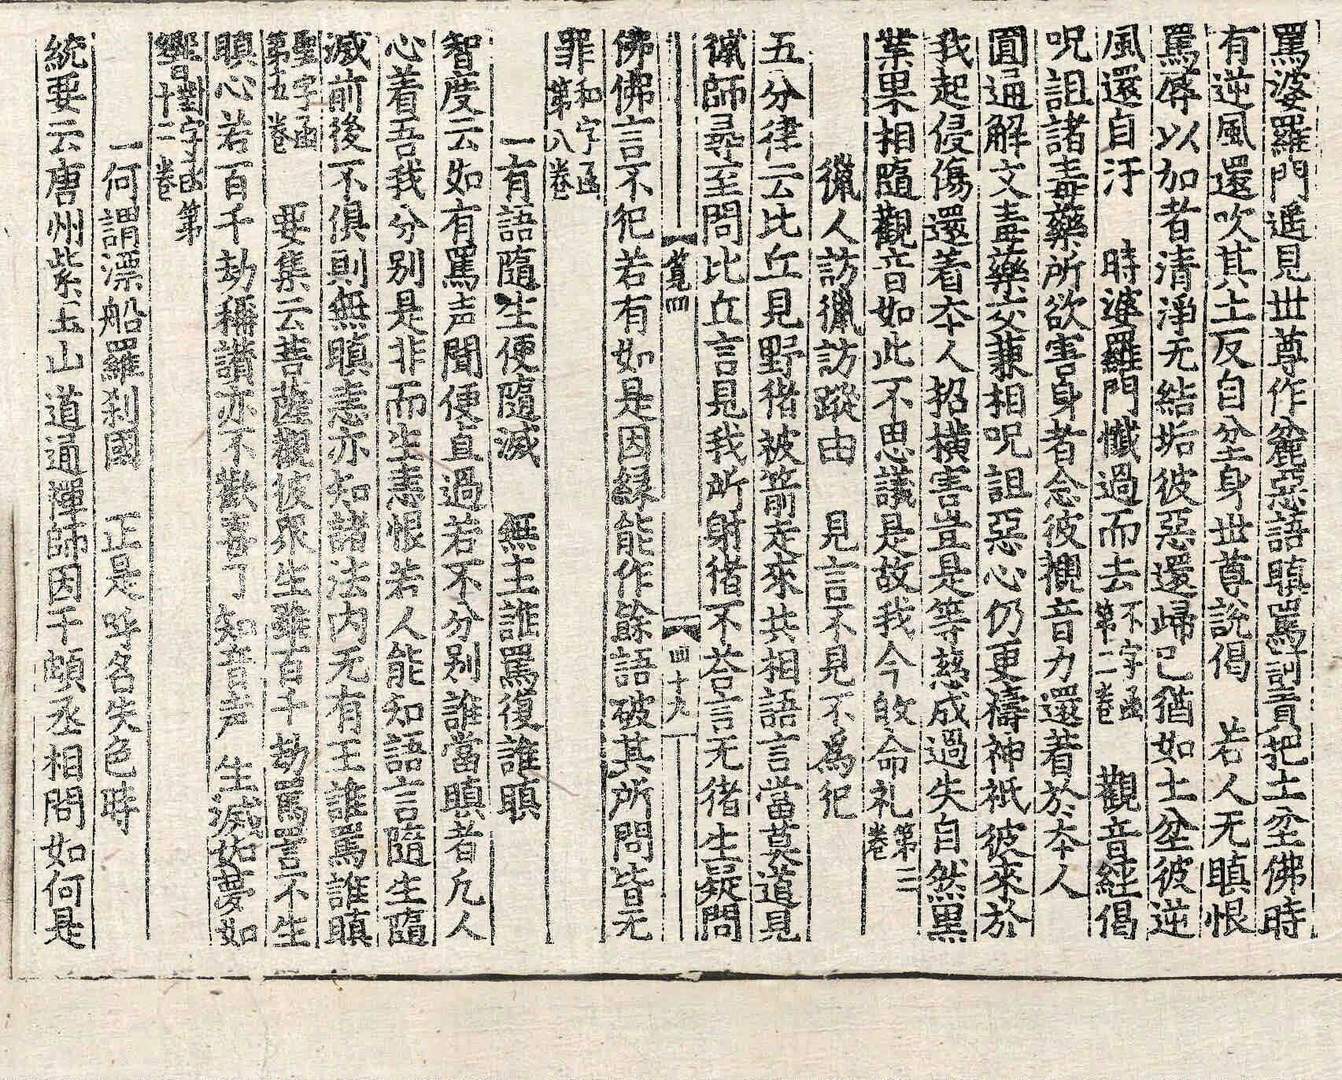 罵婆羅門遥見世尊作麁惡語瞋罵訶責把土坌佛時
有逆風還吹其土反自坌身世尊說偈　若人无瞋恨
罵辱以加者清淨无結垢彼惡還歸己猶如土坌彼逆
風還自汙　時婆羅門懺過而去不字函第二卷　觀音經偈
呪詛諸毒藥所欲害身者念彼觀音力還著於夲人
圎通解文毒藥父兼相呪詛惡心仍更禱神祇彼來於
我起侵傷還着夲人招横害豈是等慈成過失自然黑
業果相隨觀音如此不思議是故我今啟命礼第三卷
獵人訪獵訪蹤由　見言不見不爲犯
五分律云比丘見野猪被箭走來共相語言當莫道見
獵師尋至問比丘言見我所射猪不荅言无猪生疑問
覽四　四十九
佛佛言不犯若有如是因縁能作餘語破其所問皆无
罪和字函第八卷
一有語隨生便隨滅　無主誰罵復誰瞋
智度云如有罵声聞便直過若不分别誰當瞋者凢人
心着吾我分别是非而生恚恨若人能知語言隨生隨
滅前後不俱則無瞋恚亦知諸法内无有王誰罵誰瞋
聖字函第五卷　要集云菩薩觀彼眾生雖百千劫罵詈不生
瞋心若百千劫稱讃亦不歡喜了知音声　生滅如夢如
響對字函第十二卷
一何謂漂船羅刹國　正是呼名失色時
統要云唐州紫玉山道通禪師因于頔丞相問如何是